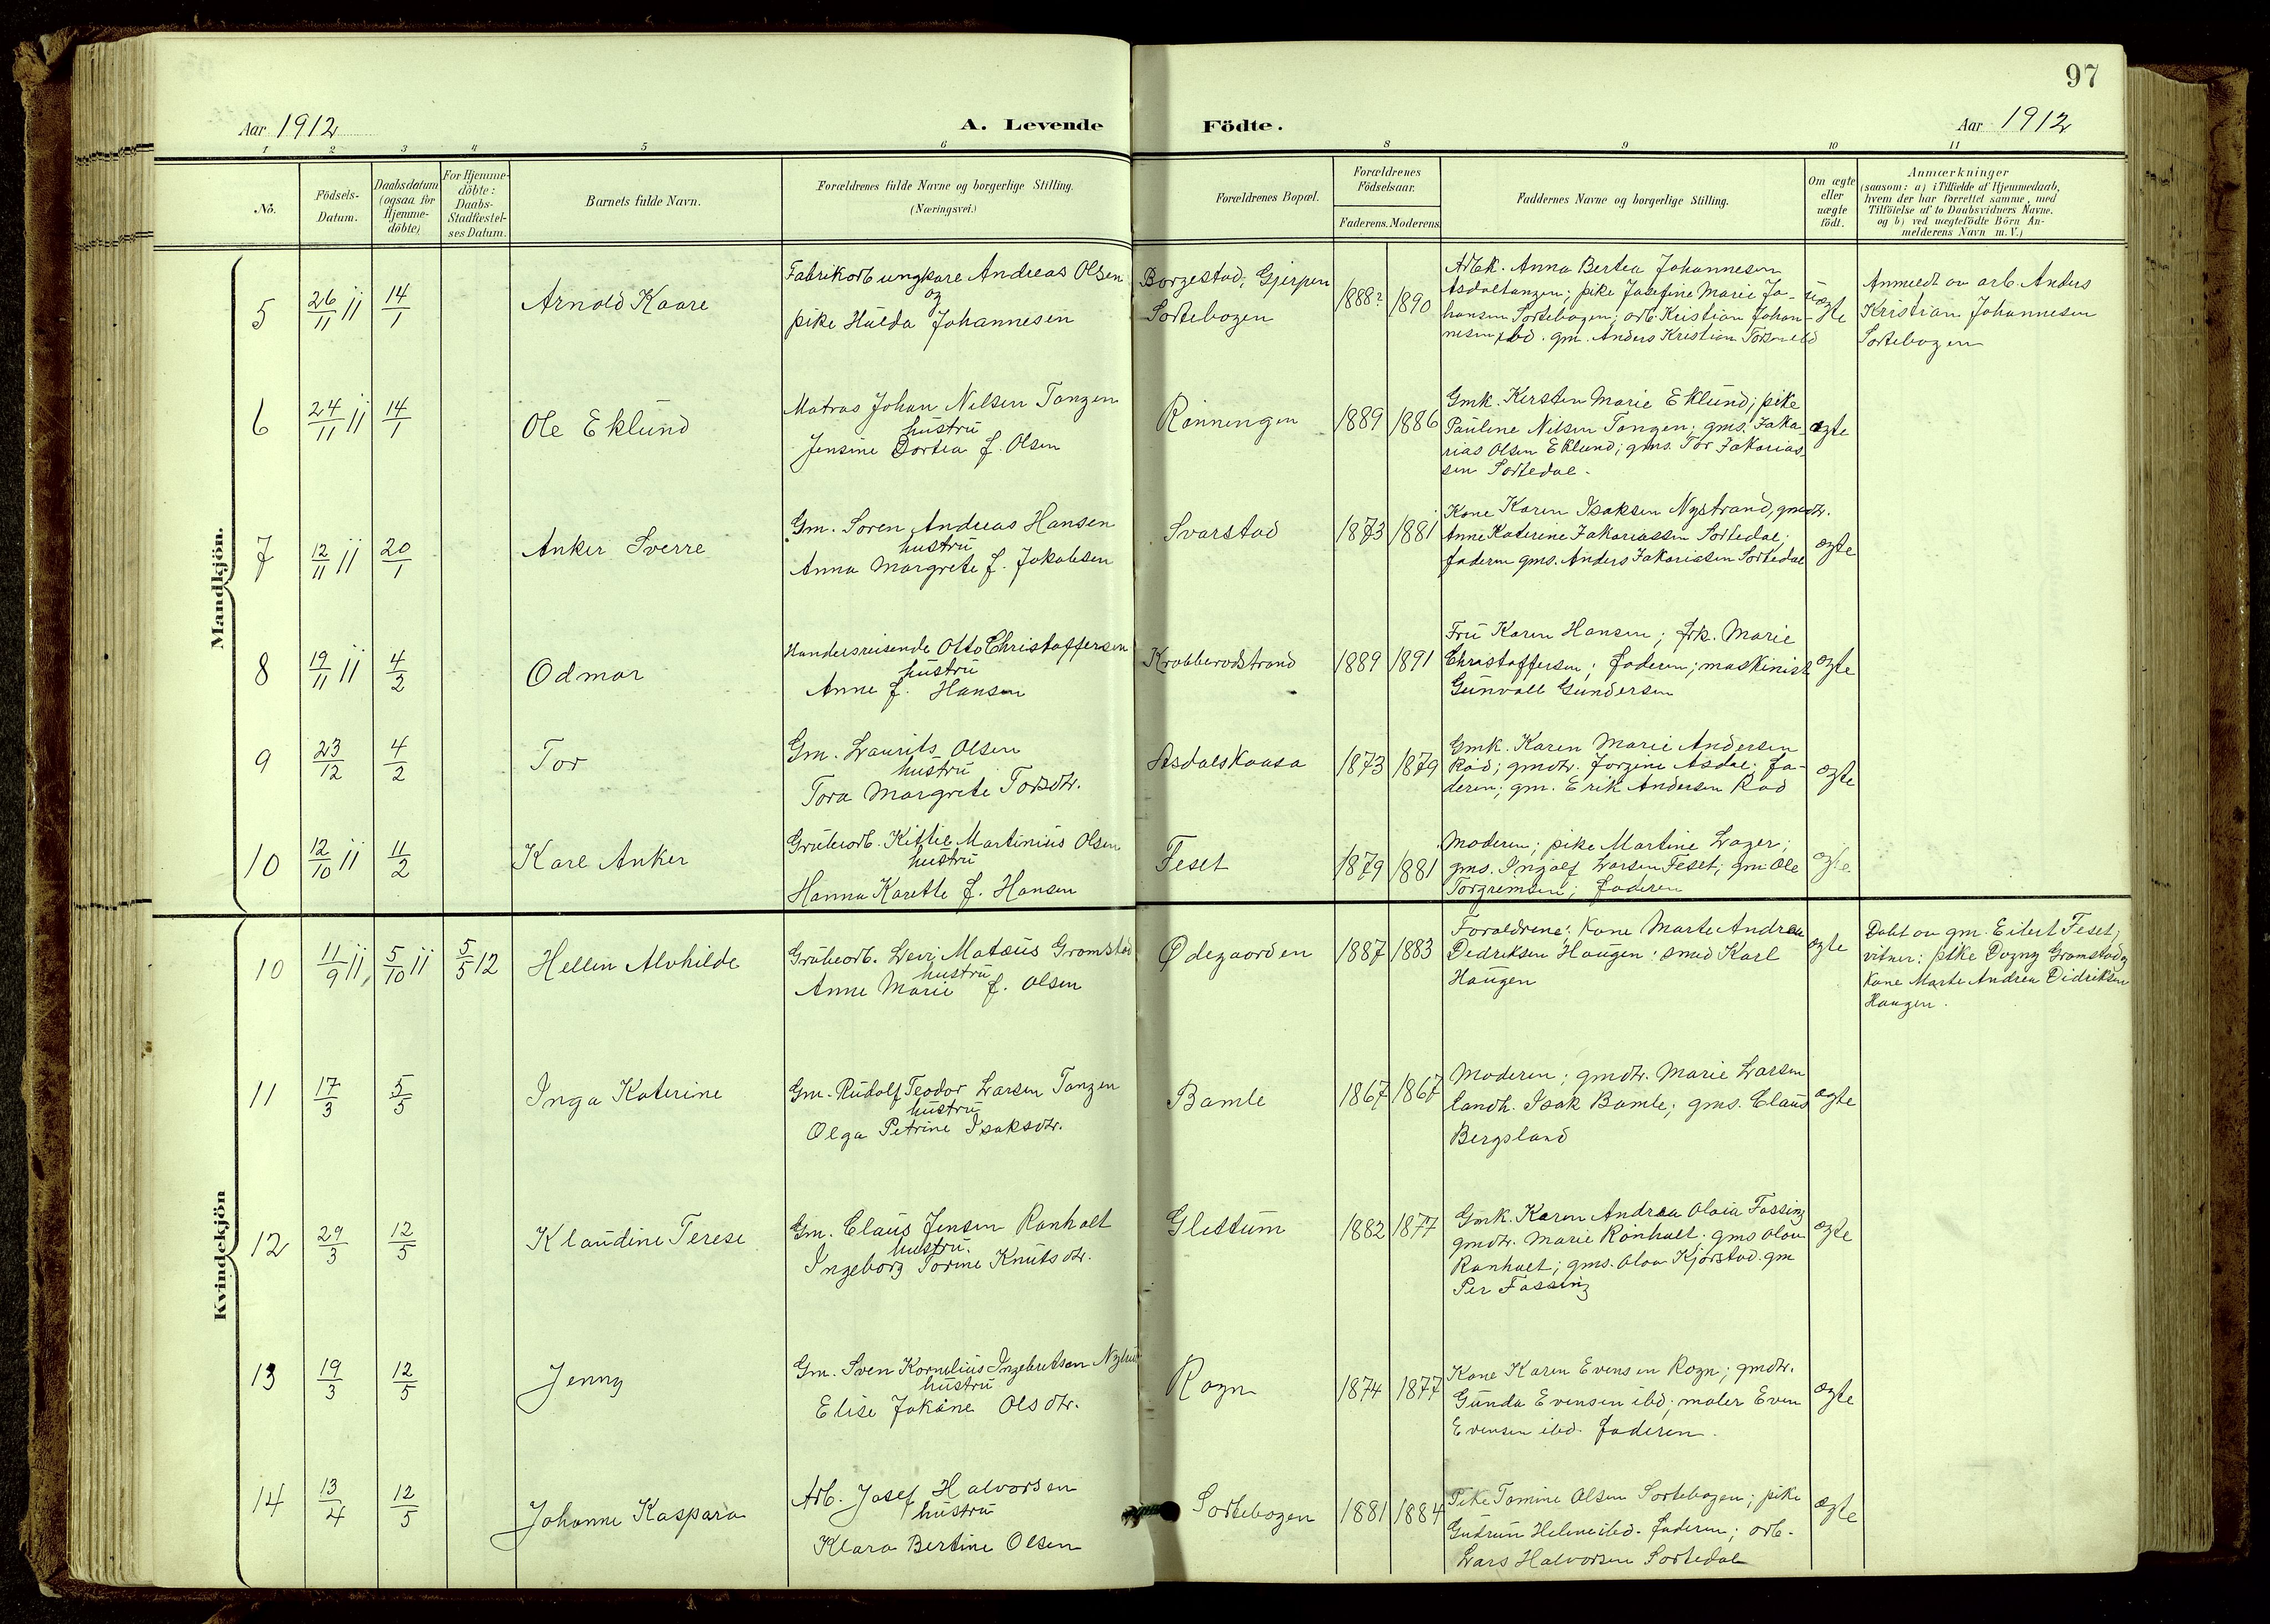 97
Aar 1912
A. Levende
Födte.
Aar 1912
1 2 3 4 5 6 8 9 10 11
No.
Födsels-
Datum.
Daabsdatum
(ogsaa for
Hjemme-
döbte)
For Hjemme-
döbte:
Daabs-
Stadfæstel-
ses Datum.
Barnets fulde Navn.
Forældrenes fulde Navne og borgerlige Stilling.
(Næringsvei.)
Forældrenes Bopæl.
Forældrenes
Födselsaar.
Faderens. Moderens.
Faddernes Navne og borgerlige Stilling.
Om ægte
eller
uægte
födt.
Anmærkninger
(saasom: a) i Tilfælde af Hjemmedaab,
hvem der har forrettet samme, med
Tilföielse af to Daabsvidners Navne.
og b) ved uægtefödte Börn An-
melderens Navn m. V.)
Mandkjön.
5 26/11 11 14/1 Arnold Kaare
Fabrikarb ungkare Andreas Olsen
og
pike Hulda Johannesen
Borgestad, Gjerpen
Sortebogen
1888? 1890
Arbk. Anna Bertea Johannesen
Asdaltangen; pike Josefine Marie Jo-
hansen Sortebogen; arb. Kristian Johan-
nesen ibd. gm. Anders Kristian Torsen ibd
uægte
Anmeldt av arb. Anders
Kristian Johannesen
Sortebogen
6 24/11 11 14/1 Ole Eklund
Matros Johan Nilsen Tangen
hustru
Jensine Dortea f. Olsen
Rønningen
1889 1886
Gmk. Kirsten Marie Eklund; pike
Pauline Nilsen Tangen; gms. Zaka-
rias Olsen Eklund; gms. Tor Zakarias-
sen Sortedal.
ægte
7 12/11 11 20/1 Anker Sverre
Gm. Søren Andreas Hansen
hustru
Anna Margrete f. Jakobsen
Svarstad
1873 1881
Kone Karen Isaksen Nystrand, gmdtr.
Anne Katerine Zakariassen Sortedal;
faderen gms. Anders Zakariasen Sortedal
ægte
8 19/11 11 4/2 Odmar
Handelsreisende Otto Christoffersen
hustru
Anne f. Hansen
Krabberødstrand
1889 1891
Fru Karen Hansen; frk. Marie
Christoffersen; faderen; maskinist
Gunvald Gundersen
ægte
9 23/12 4/2 Tor
Gm. Laurits Olsen
hustru
Tora Margrete Torsdtr.
Asdalskaasa
1873 1879
Gmk. Karen Marie Andersen
Rød; gmdtr. Jorgine Asdal; fa-
deren; gm. Erik Andersen Rød
ægte
10 12/10 11 11/2 Karl Anker
Grubearb. Kittil Martinius Olsen
hustru
Hanna Karette f. Hansen
Feset
1879 1881
Moderen; pike Martine Lager;
gms. Ingolf Larsen Feset; gm. Ole
Torgrimsen; faderen
ægte.
Kvindekjön
10 11/9 11, 5/10 11 5/5 12 Hellen Alvhilde
Grubearb. Levi Mateus Gromstad
hustru
Anne Marie f. Olsen
Ødegaarden
1887 1883
Forældrene; kone Marte Andrea
Dedriksen Haugen; smed Karl
Haugen
ægte
Døbt av gm. Eilert Feset,
vitner: pike Dagny Gromstad og
kone Marte Andrea Didriksen
Haugen.
11 17/3 5/5 Inga Katerine
Gm. Rudolf Teodor Larsen Tangen
hustru
Olga Petrine Isaksdtr.
Bamle
1867 1867
Moderen; gmdtr. Marie Larsen
landh. Isak Bamle; gms. Claus
Bergsland
ægte
12 29/3 12/5 Klaudine Terese
Gm. Claus Jensen Rønholt
hustru.
Ingeborg Torine Knutsdtr.
Glittum
1882 1877
Gmk. Karen Andrea Olava Fossing
gmdtr. Marie Rønholt. gms Olav
Rønholt; gms. Olav Kjørstad. gm
Per Fossing
ægte
13 19/3 12/5 Jenny
Gm. Sven Kornelius Ingebretsen Nyhus
hustru
Elise Jokåne Olsdtr.
Rogn
1874 1877
Kone Karen Evensen Rogn; gmdtr.
Gunda Evensen ibd; maler Even
Evensen ibd. faderen.
ægte
14 13/4 12/5 Johanne Kaspara
Arb. Josef Halvorsen
hustru
Klara Bertine Olsen
Sortebogen
1881 1884
Pike Tomine Olsen Sortebogen; pike
Gudrun Helene ibd. faderen; arb.
Lars Halvorsen Sortedal
ægte